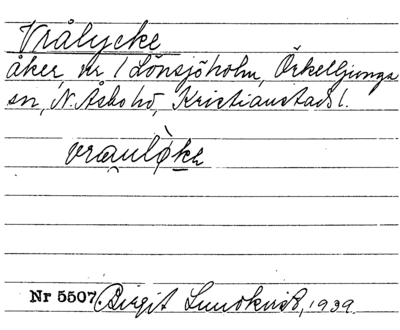 Vrålycke
åker, nr 1 Lönsjöholm, Örkelljunga
sn, N. Åsbo hd, Kristianstads l.
vraulø̀kə
Nr 5507. Birgit Lundkvist, 1939.